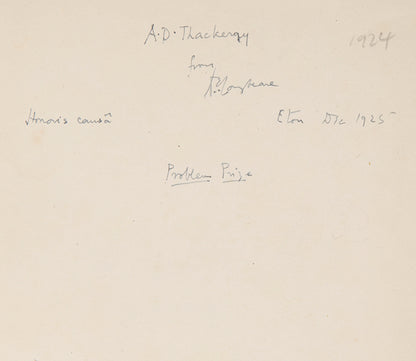 A.D. Thackeray
1924
from
Conybeare
Honoris causâ
Eton Dec 1925
Problem Prize